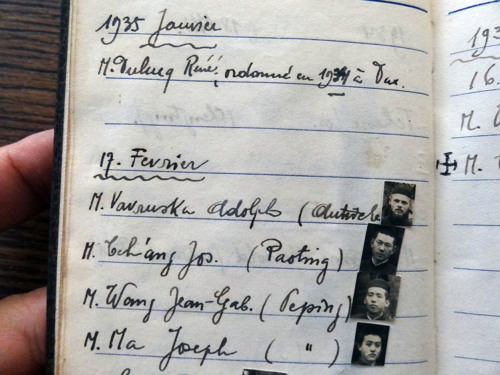 1935 Janvier
M. Dulucq René, ordonné en 1934 à Dax.
17. Fevrier
M. Vavruska Adolph (Autriche
M. Tch'ang Jos. (Paoting)
M. Wang Jean-Gab. (Peping)
M. Ma Joseph ( " )
193
16
M.
M.